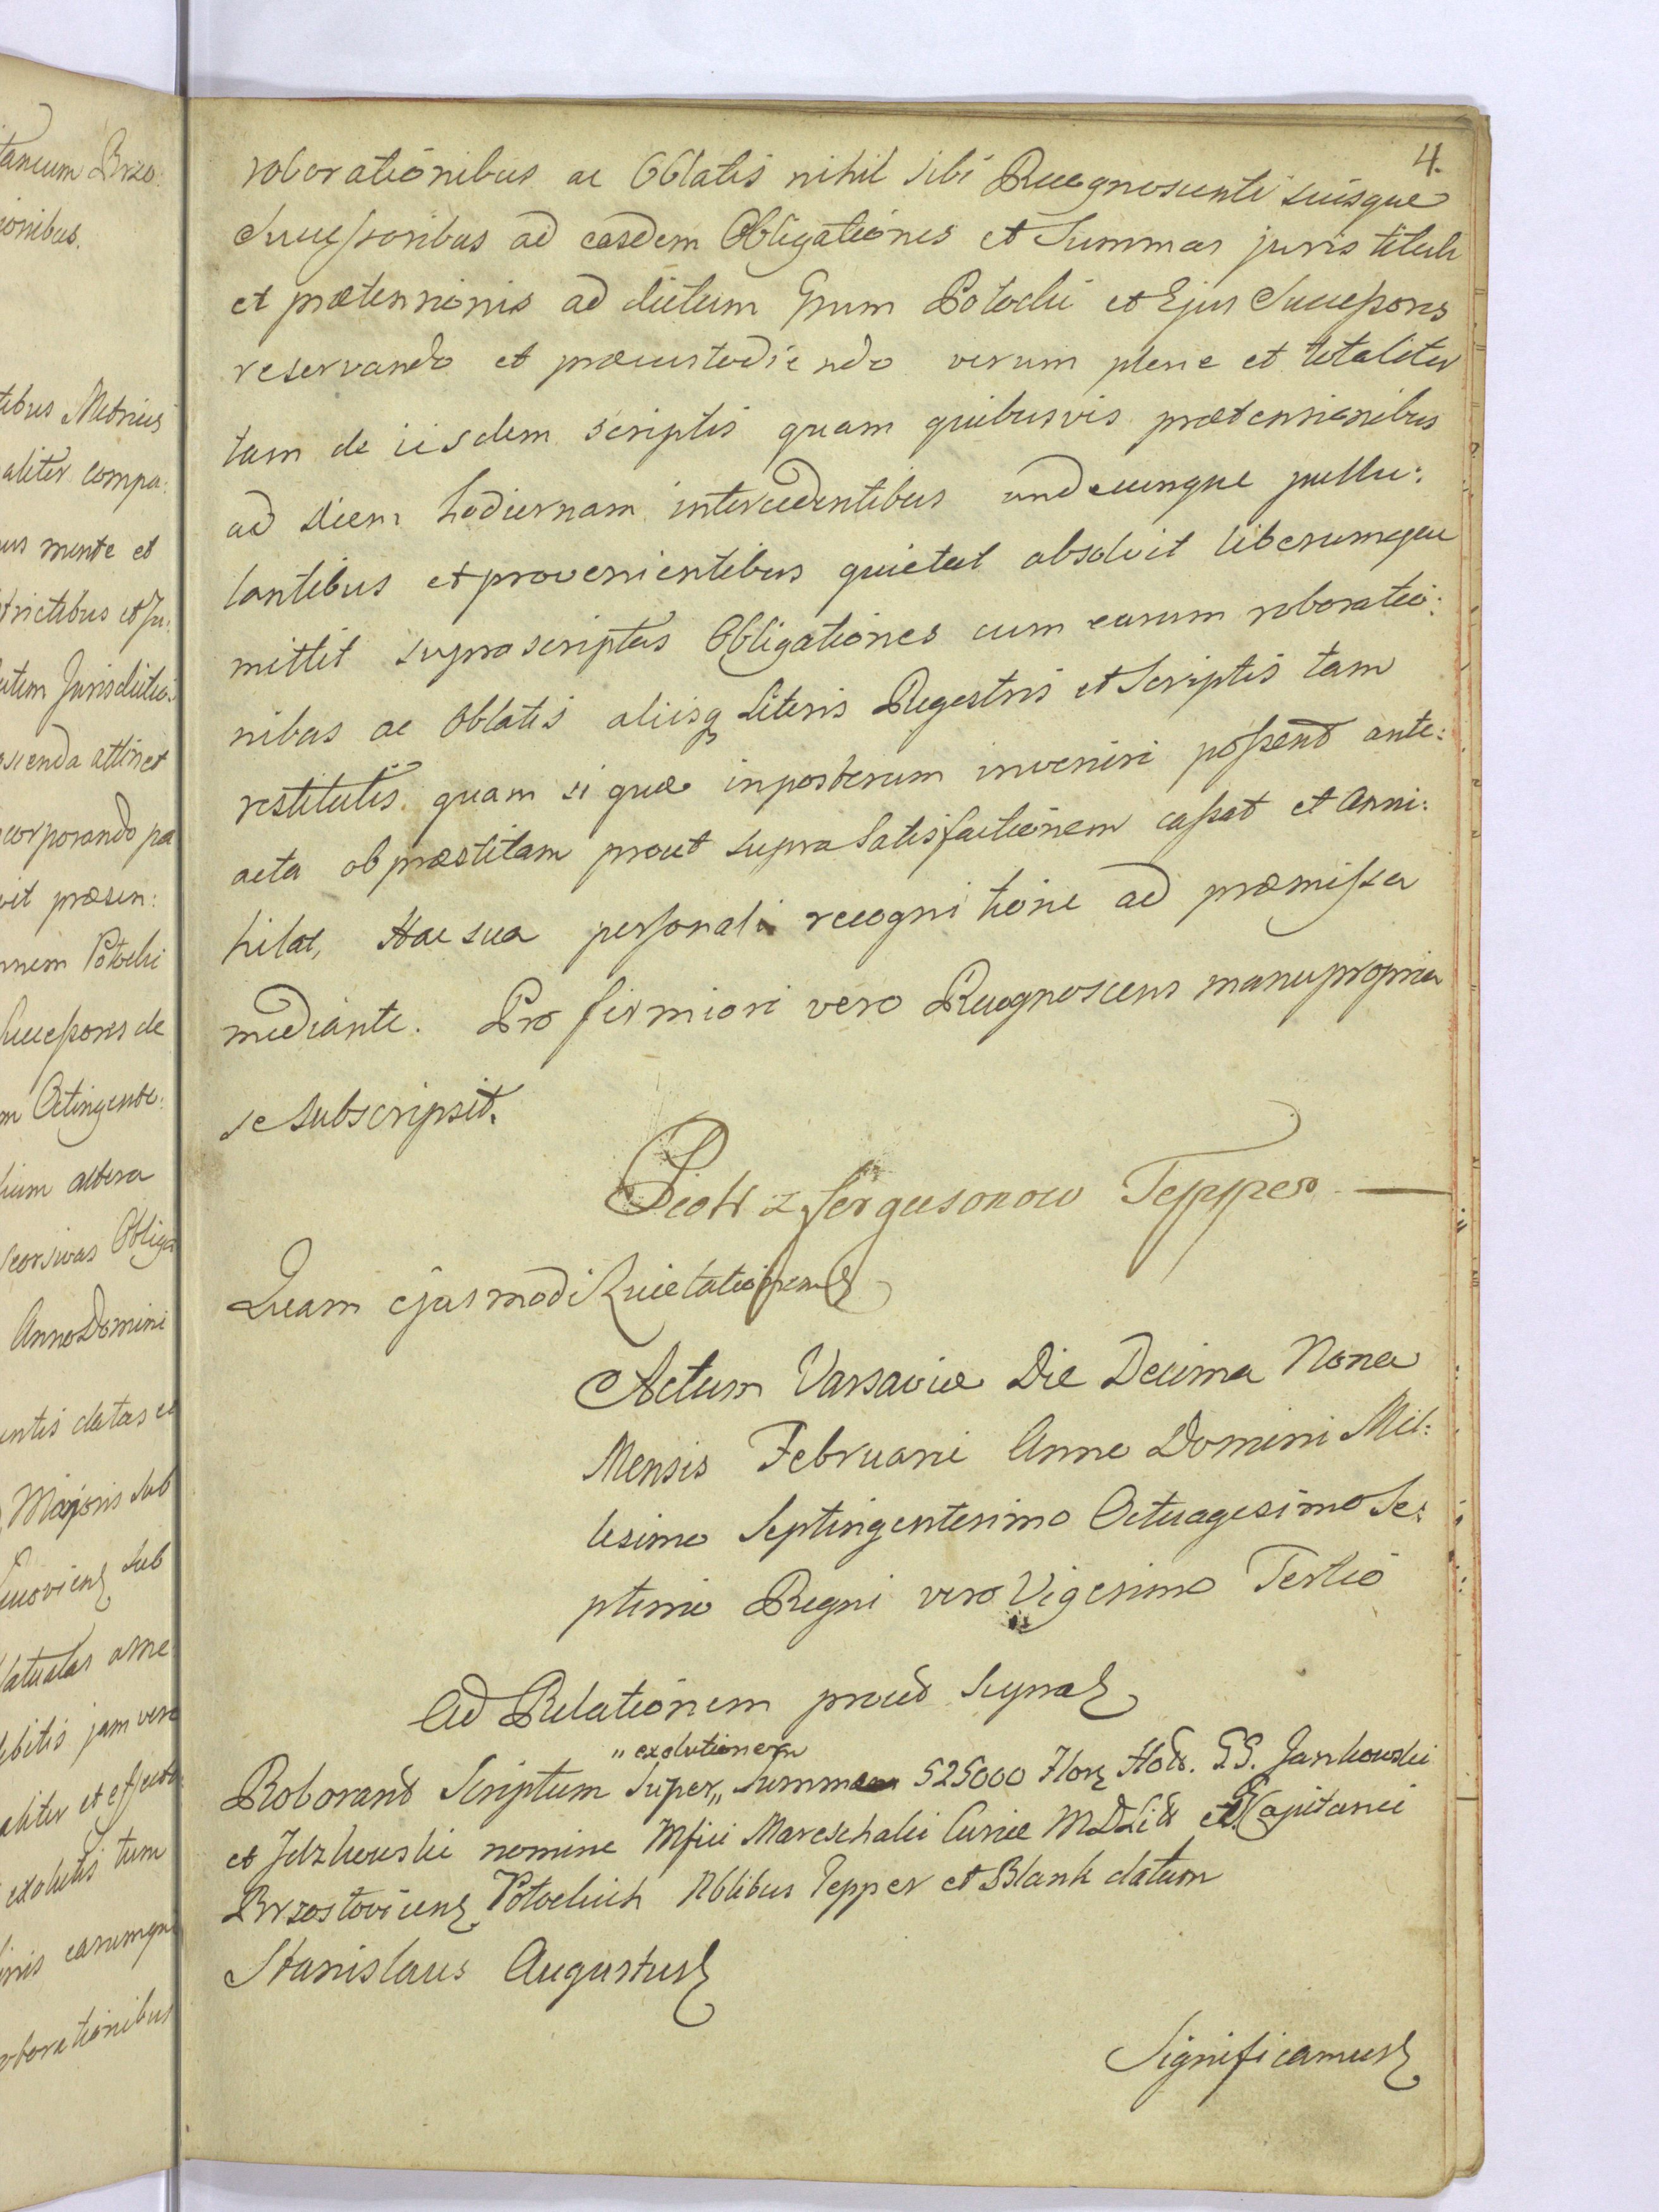 4.
roborationibus ac Oblatis nihil sibi Recognoscenti suisque
Successoribus ad easdem Obligationes et Summas juris tituli
et prætensionis ad dictum Gnum Potocki et Ejus Successores
reservando et præcustodiendo verum plene et totaliter
tam de iisdem scriptis quam quibusvis prætensionibus
ad diem hodiernam intercedentibus undecunque pullu:
lantibus et provenientibus quietat absolvit liberumque
mittit suprascriptas Obligationes cum earum roboratio:
nibus ac Oblatis aliisq Literis Regestris et Scriptis tam
restitutis quam si quæ inposterum inveniri possent ante:
acta ob præstitam prout supra Satisfactionem cassat et anni:
hilat, Hac sua personali recognitione ad præmissa
mediante. Pro firmiori vero Recognoscens manu propria
se subscripsit.
Piotr z Fergusonow Tepper
Quam ejusmodi Quietationem
Actum Varsaviæ Die Decima Nona
Mensis Februarii Anno Domini Mil:
lesimo Septingentesimo Octuagesimo Se:
ptimo Regni vero Vigesimo Tertio
Ad Relationem prout supra
„exolutionem
Roborand Scriptum Super„ Summam 525000 Flor Hol. GG. Jankowski
et Jdzkowski nomine Mfici Mareschalci Curiæ MDLitt et Capitanei
Brzostovicen Potockich Nblibus Tepper et Blank datum
Stanislaus Augustus
Significamus
taneum Brzo:
ionibus.
tibus Metrices
aliter compa:
us mente et
trictibus et Ju:
utem Jurisdictio:
scenda attinet
corporando pa
vit præsen:
nem Potocki
Successores de
m Octingente:
ium altera
seorsivas Obliga
Anno Domini
entis datas et
Majoris sub
sub
ebitis jam vero
aliter et effecti
exolutis tum
earumque
roborationibus